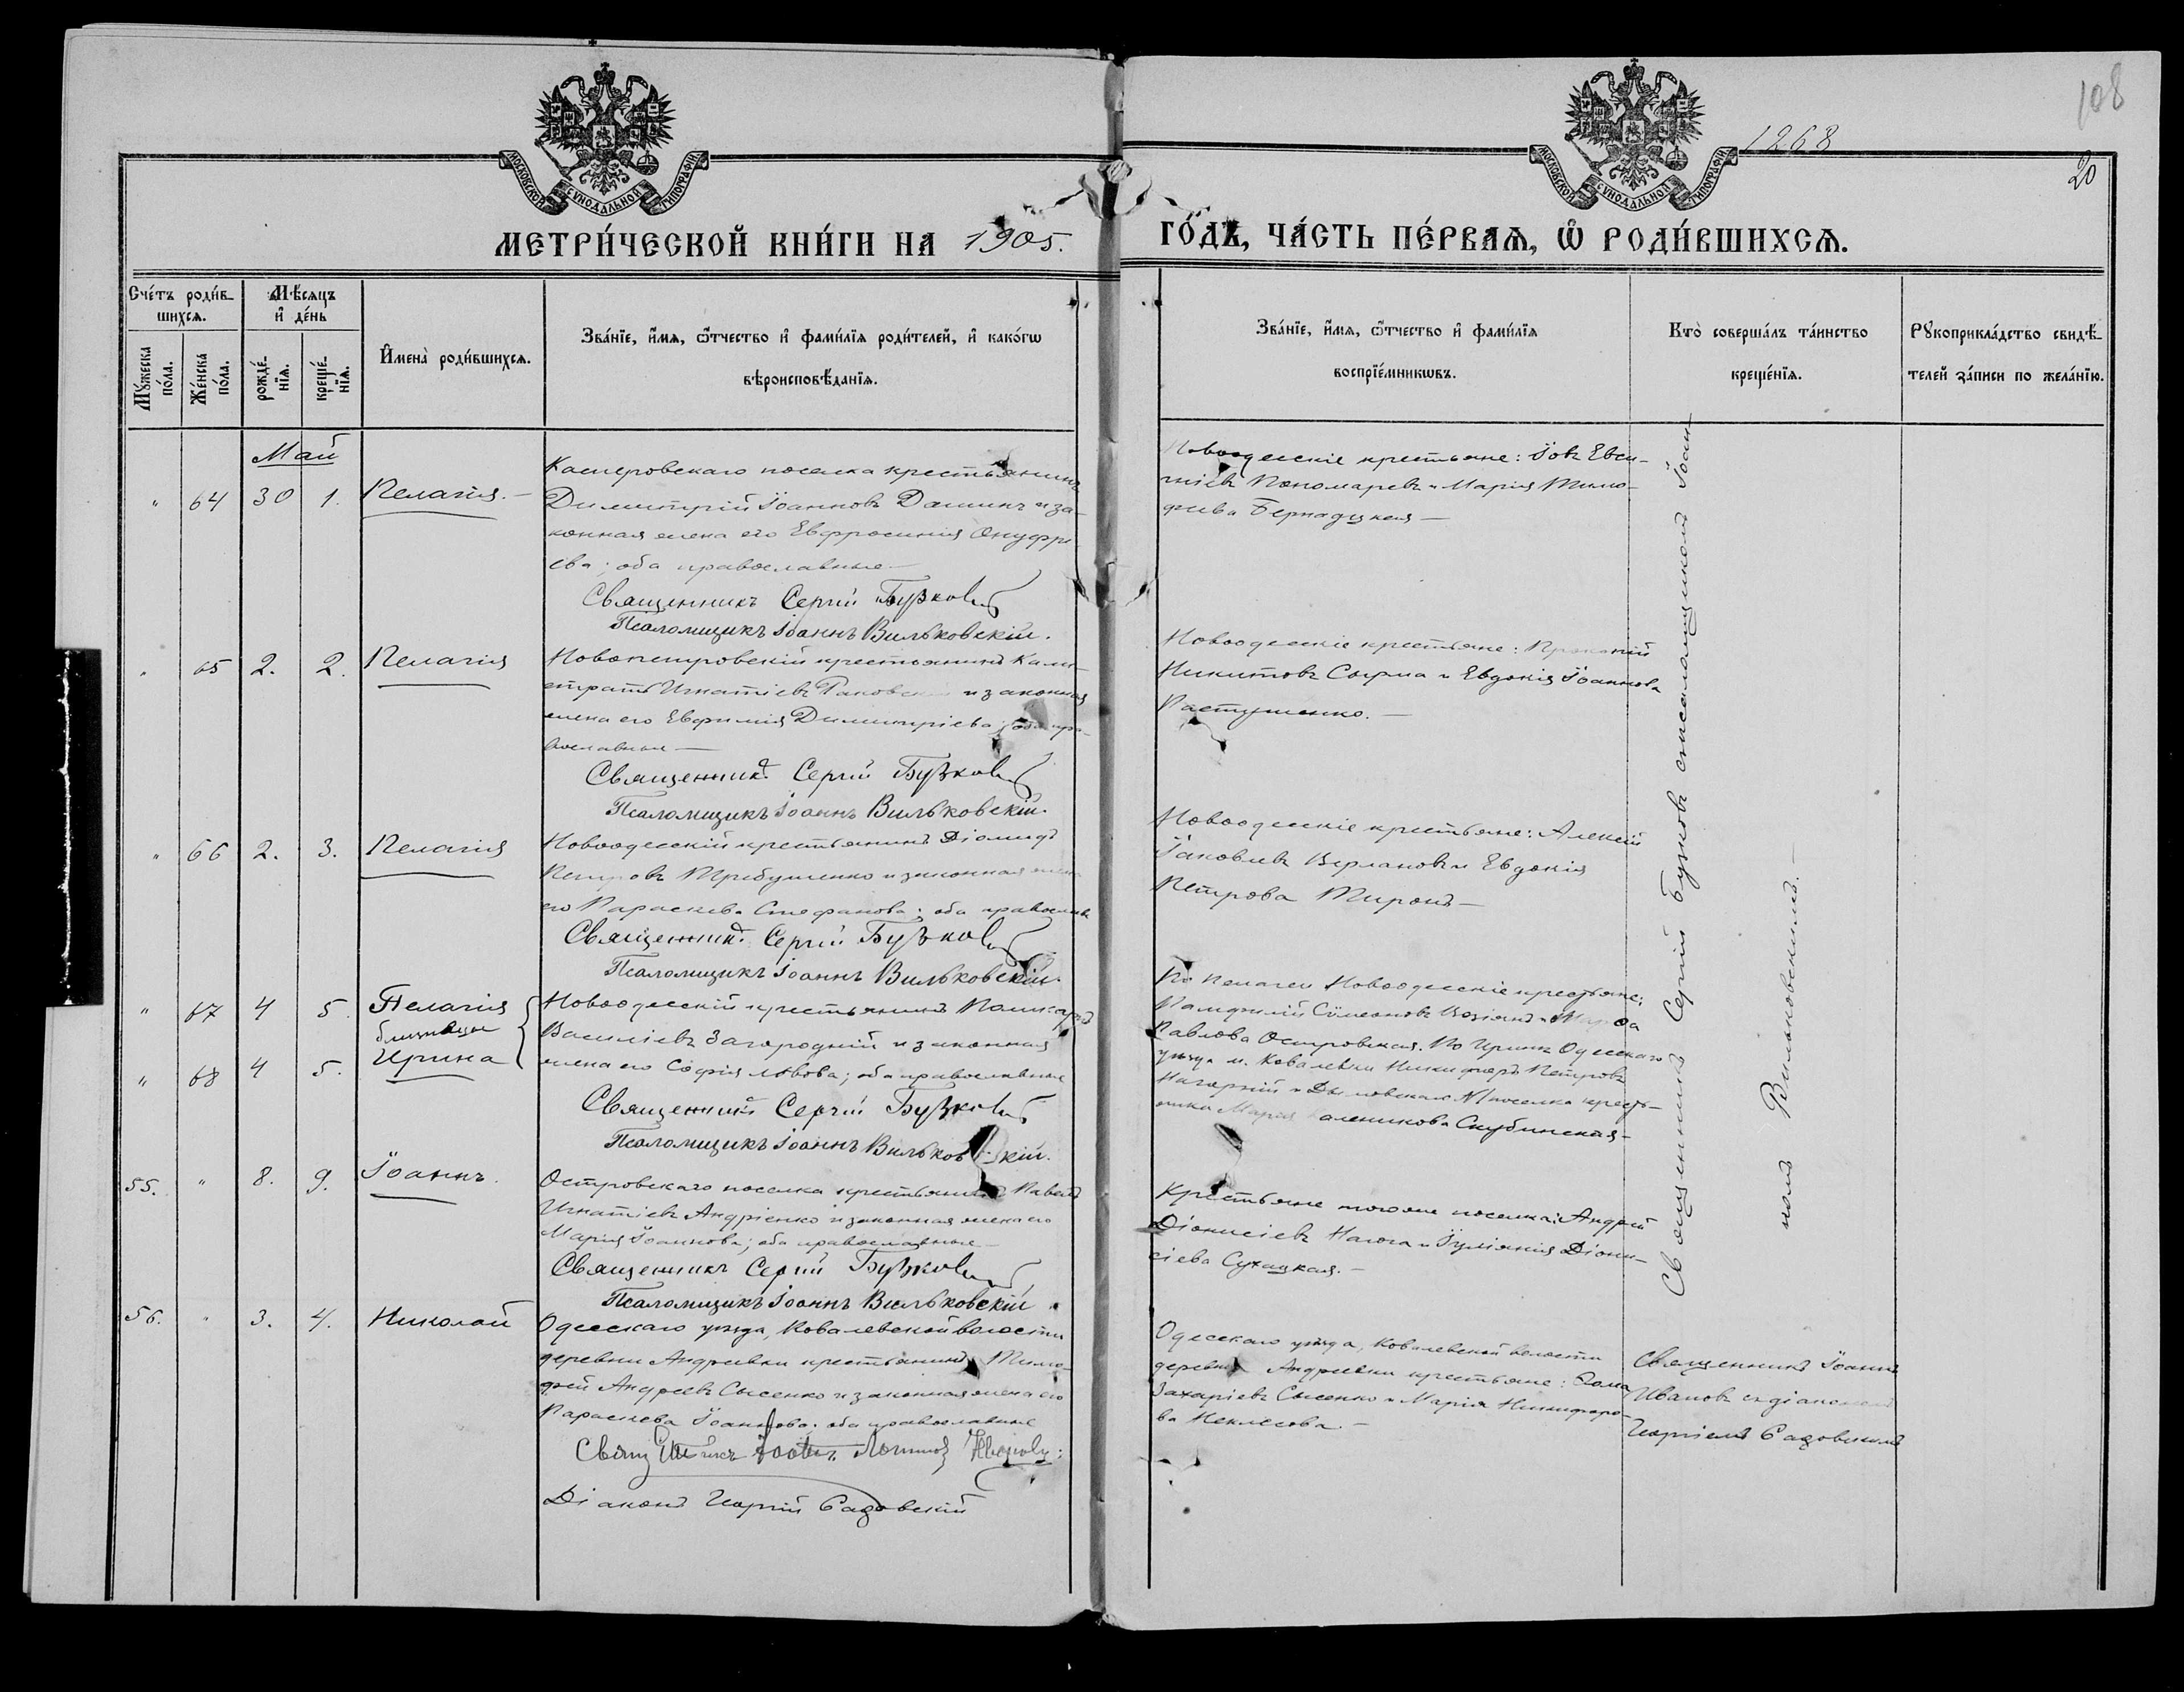 108
1268
20
МОСКОВСКОЙ СѴНОДАЛЬНОЙ ТИПОГРАФІИ
МОСКОВСКОЙ СѴНОДАЛЬНОЙ ТИПОГРАФІИ
МЕТРИ́ЧЕСКОЙ КНИ́ГИ НА 1905. ГО́ДЪ, ЧА́СТЬ ПЕ́РВАѦ, Ѽ РОДИ́ВШИХСѦ.
Сче́тъ роди́в-
шихсѧ.
Мꙋ́жеска
по́ла.
Же́нска
по́ла.
Мѣ́сѧцъ
и҆ де́нь
рожде́-
нїѧ.
креще́-
нїѧ.
И҆мена̀ роди́вшихсѧ.
Зва́нїе, и҆́мѧ, ѻ҆́тчество и҆ фами́лїѧ роди́телей, и҆ како́гѡ
вѣроисповѣ́данїѧ.
Зва́нїе, и҆́мѧ, ѻ҆́тчество и҆ фами́лїѧ
воспрїе́мникѡвъ.
Кто̀ соверша́лъ та́инство
креще́нїѧ.
Рꙋкоприкла́дство свидѣ́-
телей за́писи по жела́нїю.
Май
" 64 30 1. Пелагія. —
Касперовскаго поселка крестьянинъ
Димитрій Іоанновъ Дашинъ и за-
конная жена его Евфросинія Онуфрі
ева; оба православные —
Священникъ Сергій Бузковъ
Псаломщикъ Іоаннъ Вильковскій.
Новоодесскіе крестьяне: Іовъ Евси-
гніевъ Пономаревъ и Марія Тимо-
феева Бернадцкая —
" 65 2. 2. Пелагія
Новопетровскій крестьянинъ Кали-
стратъ Игнатіевъ и законная
жена его Евфимія Димитріева; оба пра-
вославные —
Священникъ Сергій Бузковъ
Псаломщикъ Іоаннъ Вильковскій.
Новоодесскіе крестьяне: Прокопій
Никитовъ Сырма и Евдокія Іоаннова
Пастушенко. —
" 66 2. 3. Пелагія
Новоодесскій крестьянинъ Діомидъ
Петровъ Трибушенко и законная жена
его Параскева Стефанова; оба православ
Священникъ Сергій Бузковъ
Псаломщикъ Іоаннъ Вильковскій.
Новоодесскіе крестьяне: Алексій
Іаковлевъ Верлановъ и Евдокія
Петрова Миронъ —
" 67 4 5. Пелагія
близнецы
" 68 4 5. Ирина
Новоодесскій крестьянинъ Поликарпъ
Василіевъ Загородній и законная
жена его Софія Львова; оба православные
Священникъ Сергій Бузковъ
Псаломщикъ Іоаннъ Вильковскій.
По Пелагеи Новоодесскіе крестьяне:
Памфилій Сѵмеоновъ и Марфа
Павлова Островская. По Иринѣ Одесскаго
уѣзда м. Ковалевки Никифоръ Петровъ
Нагорній и поселка кресть-
янка Марія Скубинская —
55. " 8. 9. Іоаннъ.
Островскаго поселка крестьянинъ Павелъ
Игнатіевъ Андріенко и законная жена его
Марія Іоаннова; оба православные —
Священникъ Сергій Бузковъ
Псаломщикъ Іоаннъ Вильковскій.
Крестьяне того же поселка: Андрей
Діонисіевъ Нагога и Іуліанія Діони-
сіева Сухацкая. —
Священникъ Сергій Бузковъ съ псаломщикомъ Іоан-
номъ Вильковскимъ. —
56. " 3. 4. Николай
Одесскаго уѣзда, Ковалевской волости
деревни Андреевки крестьянинъ Тимо-
фей Андреевъ Сысенко и законная жена его
Параскева Іоаннова; оба православные
Діаконъ Георгій Садовскій
Одесскаго уѣзда, Ковалевской волости
деревни Андреевки крестьяне: Фома
Захаріевъ Сысенко и Марія Никифоро-
ва Неклесова. —
Священникъ Іоаннъ
Ивановъ съ діакономъ
Георгіемъ Садовскимъ